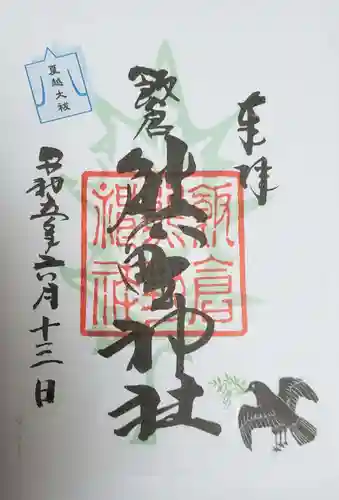 奉拝
飯倉
熊野神社
飯倉
熊野
神社
令和五年六月十三日
夏越大祓